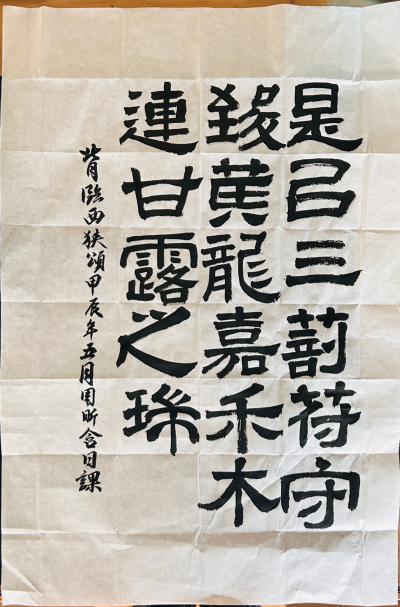 是㠯三剖苻守
致黃龍嘉禾木
連甘露之瑞
背臨西狹頌甲辰年五月周昕含日課